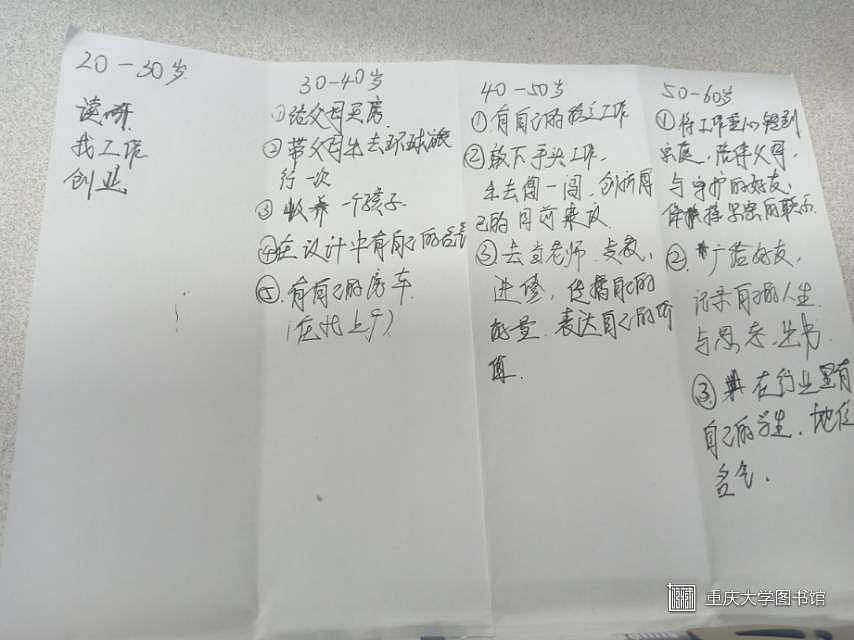 20-30岁
读研
找工作
创业
30-40岁
①给父母买房
②带父母出去环球旅
行一次
③收养一个孩子
④在设计中有自己的名气
⑤.有自己的房车
(在北上广)
40-50岁
①有自己的独立工作
②放下手头工作,
出去闯一闯,创新自
己的目前
③去当老师.支教,
进修,传播自己的
能量.表达自己的价
值.
50-60岁
①将工作重心转到
家庭,陪伴父母,
与守护的好友,
保持
②广结好友,
记录自己的人生
与思考.出书
③在行业里有
自己的学生.地位
名气.
重庆大学图书馆